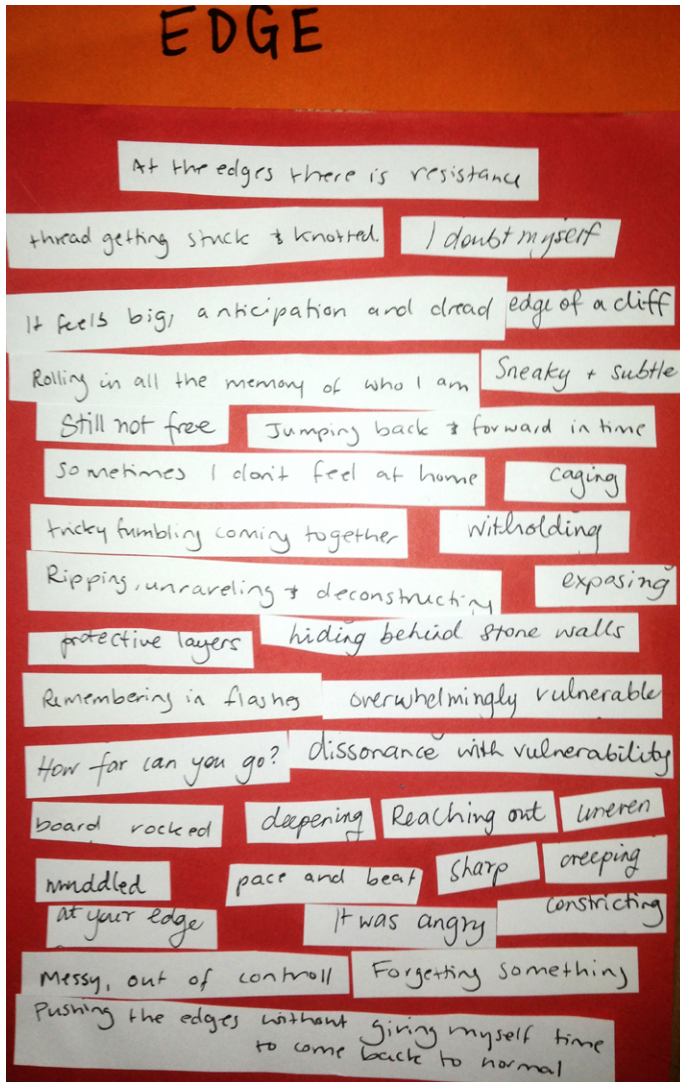 EDGE
At the edges there is resistance
thread getting stuck & knotted. I doubt myself
It feels big, anticipation and dread edge of a cliff
Rolling in all the memory of who I am Sneaky + subtle
Still not free Jumping back & forward in time
Sometimes I don't feel at home caging
tricky fumbling coming together witholding
Ripping, unraveling & deconstructing exposing
protective layers hiding behind stone walls
Remembering in flashes overwhelmingly vulnerable
How far can you go? dissonance with vulnerability
board rocked deepening Reaching out uneven
muddled pace and beat sharp creeping
at your edge It was angry constricting
Messy, out of controll Forgetting something
Pushing the edges without giving myself time
to come back to normal